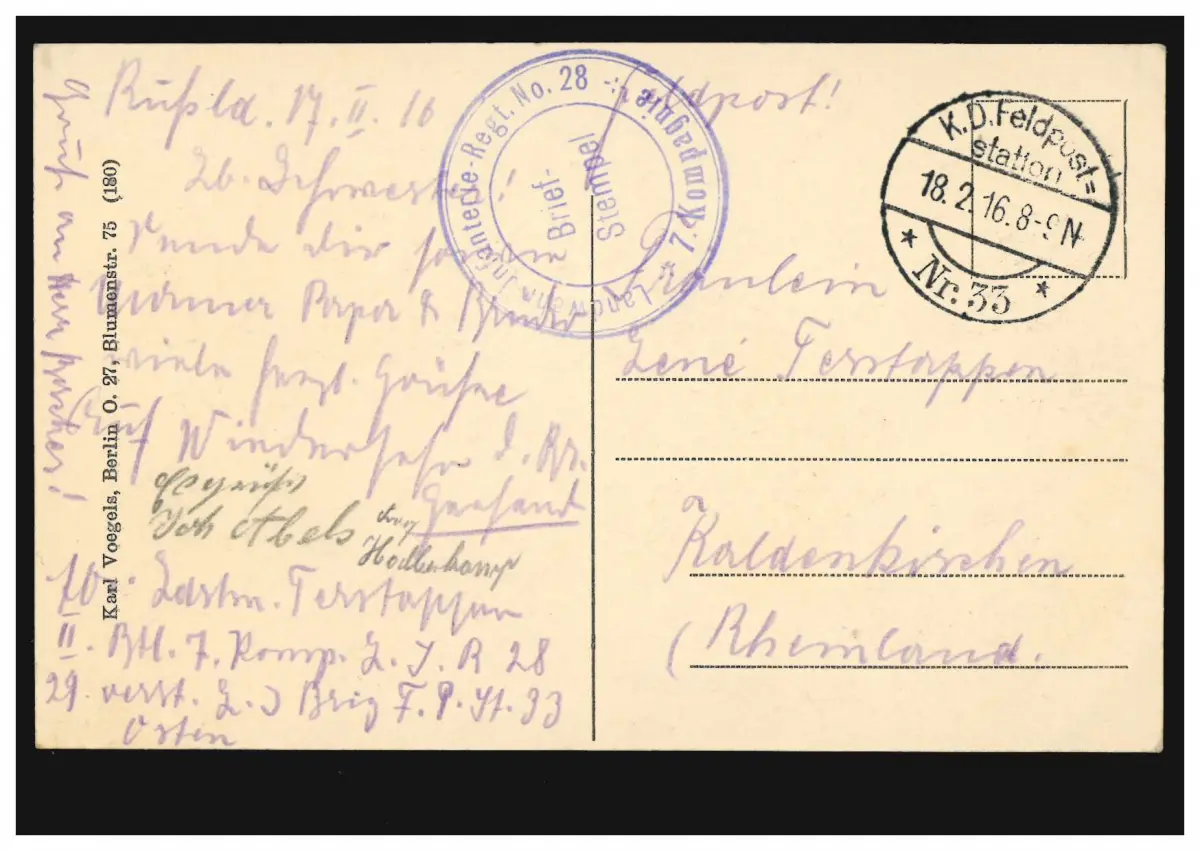 Rußld. 17. II. 16
Lb. Schwester!
Sende dir sowie
Werner Papa & Bruder
viele herzl. Grüße
Auf Wiedersehn d. Br.
Gerhard
Joh Abels
Ldstm. Terstappen
II. Btl. 7. Komp. L. I. R 28
29. verst. L. I Brig F. P. St. 33
Osten
Gruß an Herrn
Karl Voegels, Berlin O. 27, Blumenstr. 75 (180)
Landwehr Infanterie-Regt. No. 28
7. Kompagnie
Brief-
Stempel
Feldpost!
K.D. Feldpost=
station
18. 2. 16. 8-9 N
Nr. 33
Fräulein
Lené Terstappen
Kaldenkirchen
(Rheinland.